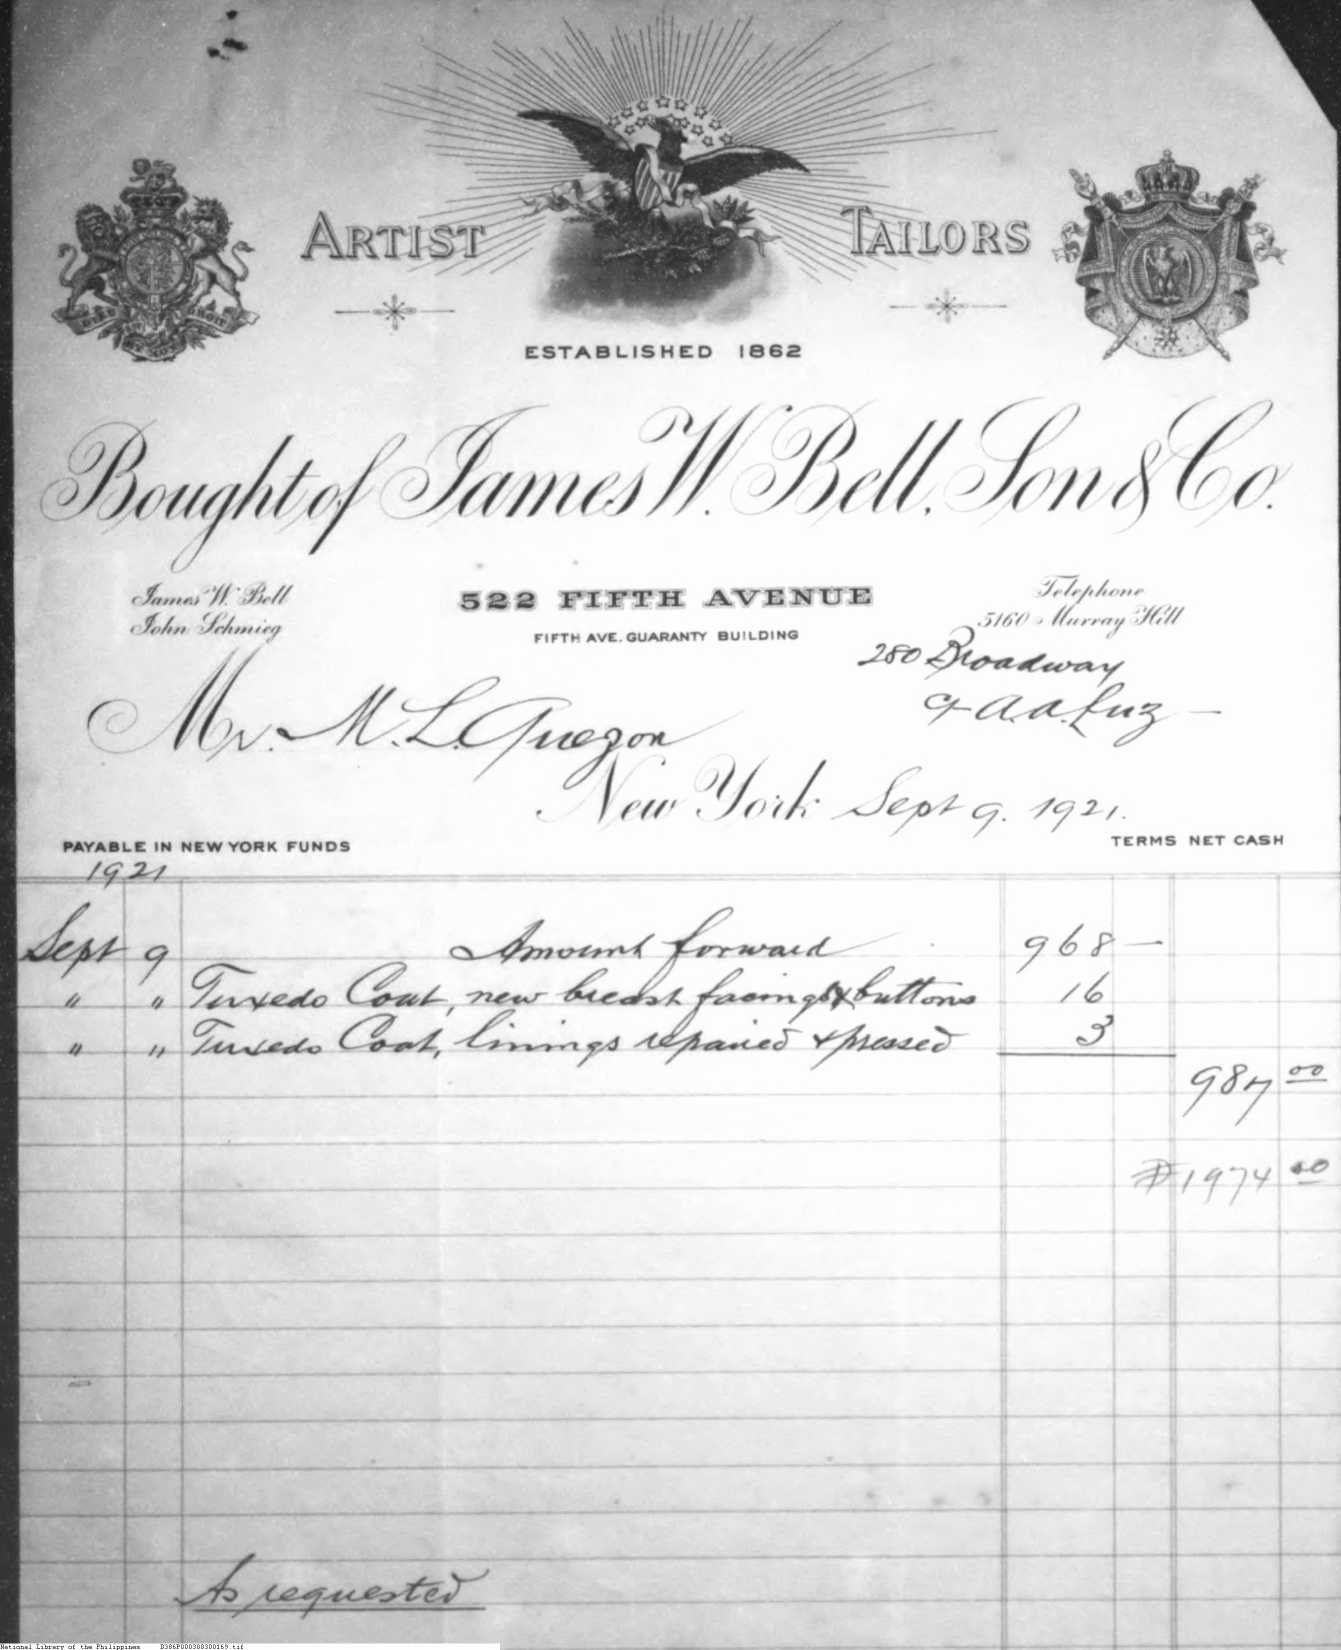 ARTIST TAILORS
ESTABLISHED 1862
Bought of James W. Bell, Son & Co.
James W. Bell
John Schmieg
522 FIFTH AVENUE
FIFTH AVE. GUARANTY BUILDING
Telephone
5160 Murray Hill
280 Broadway
A.A. Luz
Mr. M. L. Quezon
New York Sept 9. 1921.
PAYABLE IN NEW YORK FUNDS
TERMS NET CASH
1921
Sept 9 Amount forward 968 —
" " Tuxedo Coat, new breast facings & buttons 16
" " Tuxedo Coat, linings repaired & pressed 3
987 00
₱1974 00
As requested
National Library of the Philippines D386P000300300169.tif